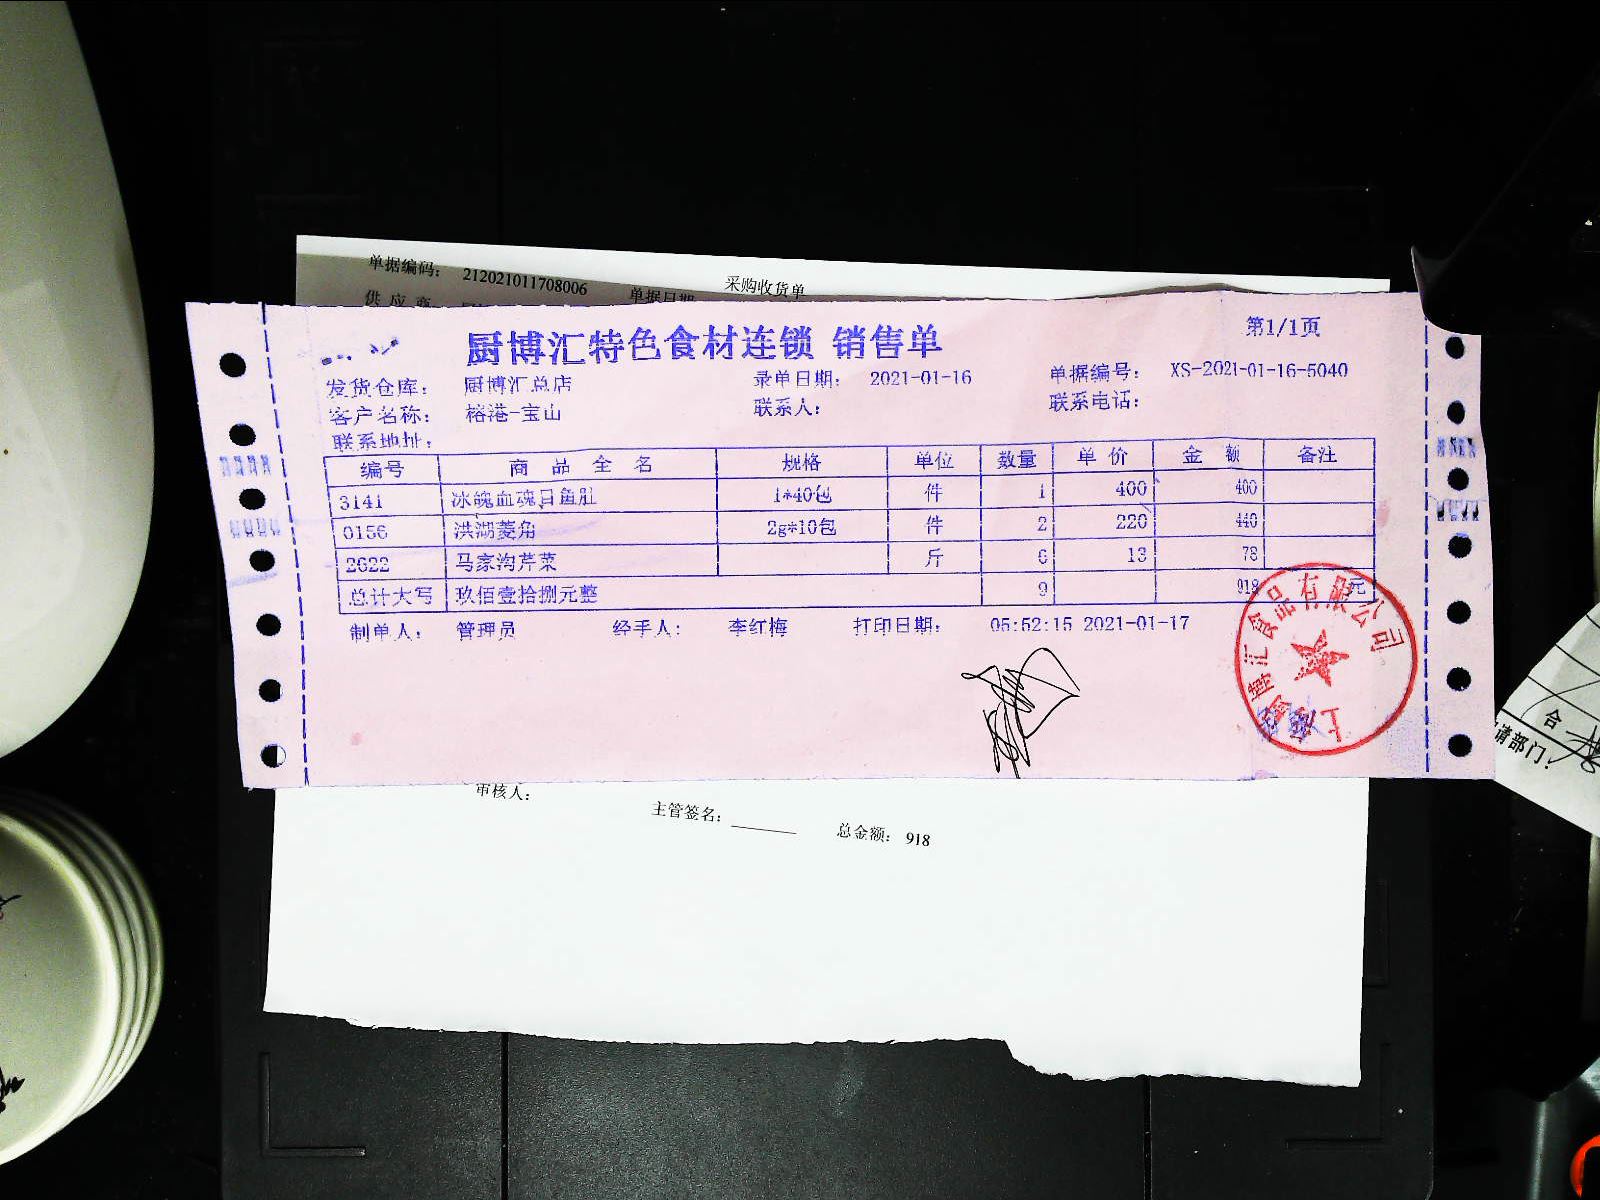 单据编码： 212021011708006 采购收货单
供 应 商 单据日期
厨博汇特色食材连锁 销售单 第1/1页
发货仓库： 厨博汇总店 录单日期： 2021-01-16 单据编号： XS-2021-01-16-5040
客户名称： 榕港-宝山 联系人： 联系电话：
联系地址：
编号 商 品 全 名 规格 单位 数量 单 价 金 额 备注
3141 冰魄血魂目鱼肚 1*40包 件 1 400 400
0156 洪湖菱角 2g*10包 件 2 220 440
2622 马家沟芹菜 斤 6 13 78
总计大写 玖佰壹拾捌元整 9 918 元
制单人： 管理员 经手人： 李红梅 打印日期： 05:52:15 2021-01-17
上海厨博汇食品有限公司
审核人： 主管签名： 总金额： 918
合
请部门：